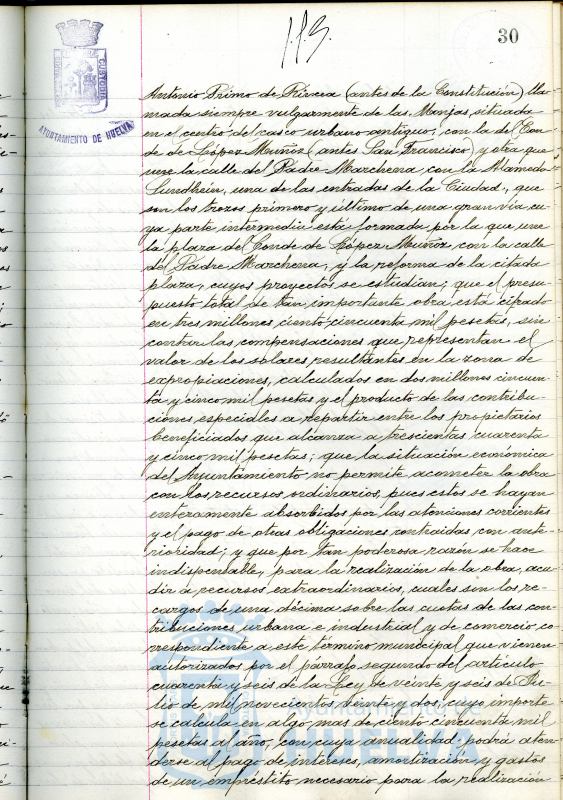 30
AYUNTAMIENTO DE HUELVA
Antonio Primo de Rivera (antes de la Constitución) lla-
mada siempre vulgarmente de las Monjas, situada
en el centro del casco urbano antiguo, con la del Con-
de de López Muñoz (antes San Francisco) y otra que
une la calle del Padre Marchena con la Alameda
Sundhein, una de las entradas de la Ciudad, que
son los trozos primero y último de una gran vía cu-
ya parte intermedia está formada por la que une
la plaza del Conde de López Muñoz con la calle
del Padre Marchena, y la reforma de la citada
plaza, cuyos proyectos se estudian; que el presu-
puesto total de tan importante obra está cifrado
en tres millones ciento cincuenta mil pesetas, sin
contar las compensaciones que representan el
valor de los solares resultantes en la zona de
expropiaciones, calculados en dos millones cincuen-
ta y cinco mil pesetas y el producto de las contribu-
ciones especiales a repartir entre los propietarios
beneficiados que alcanza a trescientas cuarenta
y cinco mil pesetas; que la situación económica
del Ayuntamiento no permite acometer la obra
con los recursos ordinarios, pues estos se hayan
enteramente absorbidos por las atenciones corrientes
y el pago de otras obligaciones contraidas con ante-
rioridad; y que por tan poderosa razón se hace
indispensable, para la realización de la obra, acu-
dir a recursos extraordinarios, cuales son los re-
cargos de una décima sobre las cuotas de las con-
tribuciones urbana e industrial y de comercio, co-
rrespondiente a este término municipal que vienen
autorizados por el párrafo segundo del artículo
cuarenta y seis de la Ley de veinte y seis de Ju-
lio de mil novecientos veinte y dos, cuyo importe
se calcula en algo mas de ciento cincuenta mil
pesetas al año, con cuya anualidad podrá aten-
derse al pago de intereses, amortización y gastos
de un empréstito necesario para la realización
Ayuntamiento de
HUELVA